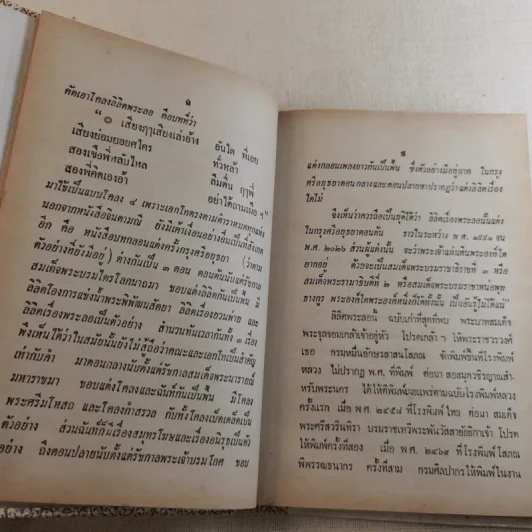 คัดเอาโคลงลิลิตพระลอ คือบทที่ว่า
"๏ เสียงฦๅเสียงเล่าอ้าง อันใด พี่เอย
เสียงย่อมยอยศใคร ทั่วหล้า
สองเขือพี่หลับใหล ลืมตื่น ฤๅพี่
สองพี่คิดเองอ้า อย่าได้ถามเผือ ฯ"
มาใช้เป็นแบบโคลง ๔ เพราะเอกโทตรงตามตำราหมดทุกแห่ง
นอกจากหนังสือจินดามณี ยังมีเค้าเงื่อนอย่างอื่นเป็นที่สังเกต
อีก คือ หนังสือบทกลอนแต่งครั้งกรุงศรีอยุธยา (ว่าตาม
ตัวอย่างที่ยังมีอยู่) ต่างกันเป็น ๓ ตอน ตอนต้นนับแต่รัชกาล
สมเด็จพระบรมไตรโลกนาถมา ชอบแต่งลิลิตกันเป็นพื้น มี
ลิลิตโองการแช่งน้ำพระพิพัฒน์สัตยา ลิลิตเรื่องยวนพ่าย และ
ลิลิตเรื่องพระลอเป็นตัวอย่าง สำนวนทันเวลากันทั้ง ๓ เรื่อง
พึงเห็นได้ว่าในสมัยนั้นยังไม่สู้ถือว่าคณะและเอกโทเป็นสำคัญ
เท่ากับคำ มาตอนกลางนับตั้งแต่รัชกาลสมเด็จพระนารายณ์
มหาราชมา ชอบแต่งโคลงและฉันท์กันเป็นพื้น มีโคลง
พระศรีมโหสถ และโคลงกำสรวล กับทั้งโคลงเบ็ดเตล็ดเป็น
ตัวอย่าง ส่วนฉันท์ก็มีเรื่องสมุทรโฆษและเรื่องอนิรุธเป็นตัว
อย่าง ถึงตอนปลายนับตั้งแต่รัชกาลพระเจ้าบรมโกศ ชอบ
ข
แต่งกลอนเพลงยาวกันเป็นพื้น ซึ่งตัวอย่างมีอยู่มาก ในกรุง
ศรีอยุธยาตอนกลางและตอนปลายหาปรากฏว่าแต่งลิลิตเรื่อง
ใดไม่
จึงเห็นว่าควรถือเป็นยุติได้ว่า ลิลิตเรื่องพระลอนั้นแต่ง
ในกรุงศรีอยุธยาตอนต้น ราวในระหว่าง พ.ศ. ๑๙๙๑ จน
พ.ศ. ๒๐๒๖ ส่วนผู้แต่งนั้น จะว่าพระเจ้าแผ่นดินพระองค์ใด
ยากอยู่ ด้วยจะเป็นสมเด็จพระบรมราชาธิราชที่ ๓ หรือ
สมเด็จพระรามาธิบดีที่ ๒ หรือสมเด็จพระบรมราชาหน่อพุท
ธางกูร พระองค์ใดพระองค์หนึ่งก็ได้ทั้งนั้น เป็นอันรู้ไม่ได้แน่"
ลิลิตพระลอนี้ ฉบับเก่าที่สุดที่พบ พระบาทสมเด็จ
พระจุลจอมเกล้าเจ้าอยู่หัว โปรดเกล้า ฯ ให้พระราชวรวงศ์
เธอ กรมหมื่นอักษรสาสนโสภณ จัดพิมพ์ขึ้นที่โรงพิมพ์
หลวง ไม่ปรากฏ พ.ศ. ที่พิมพ์ ต่อมา หอสมุดวชิรญาณสำ-
หรับพระนคร ได้ให้ตีพิมพ์เผยแพร่ตามฉบับโรงพิมพ์หลวง
ครั้งแรก เมื่อ พ.ศ. ๒๔๕๘ ที่โรงพิมพ์ไทย ต่อมา สมเด็จ
พระศรีสวรินทิรา บรมราชเทวีพระพันวัสสาอัยยิกาเจ้า โปรด
ให้พิมพ์ครั้งที่สอง เมื่อ พ.ศ. ๒๔๖๙ ที่โรงพิมพ์โสภณ
พิพรรฒธนากร ครั้งที่สาม กรมศิลปากรให้พิมพ์ในงาน